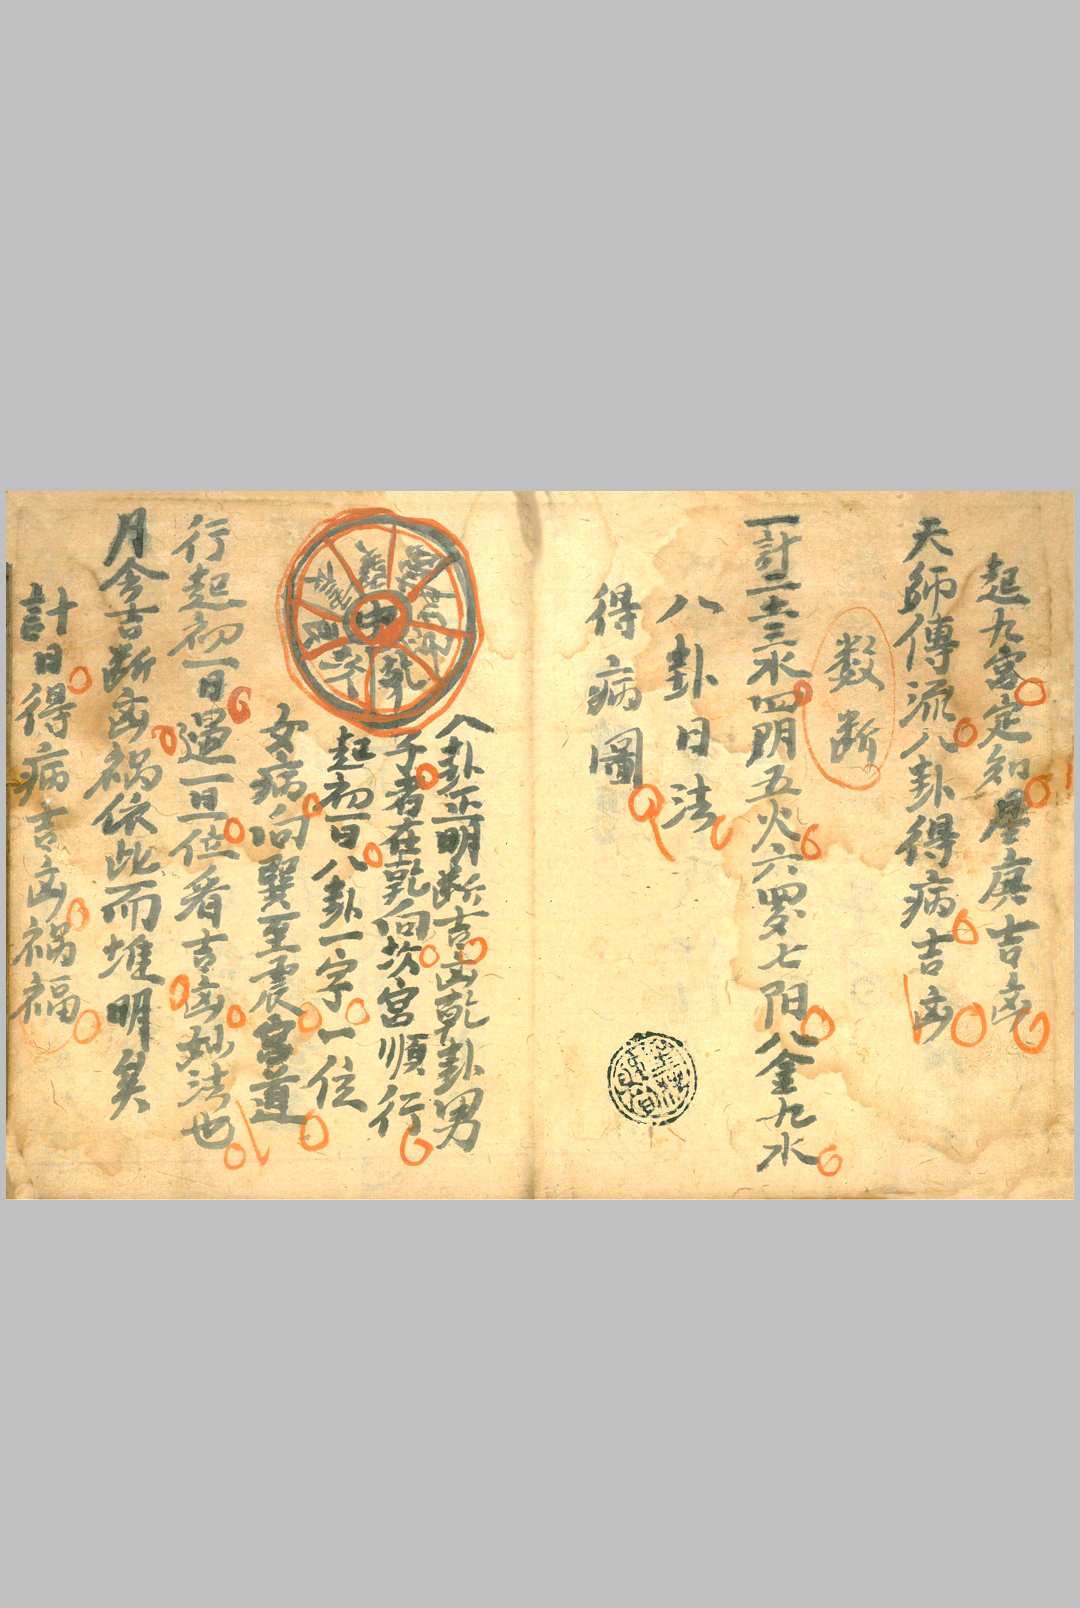 起九宮定知星庚吉凶
天師傳流八卦得病吉凶
数断
一計二土三水四門五火六罗七阳八金九水
八卦日法
得病圖
中
乾
八卦正明断吉凶乾卦男
子者在乾向坎宮順行
起初一日八卦一字一位
女病向巽至震宮道
行起初一日過一日一位看吉凶妙法也
月令吉断凶禍依此而堆明矣
計日得病吉凶禍福